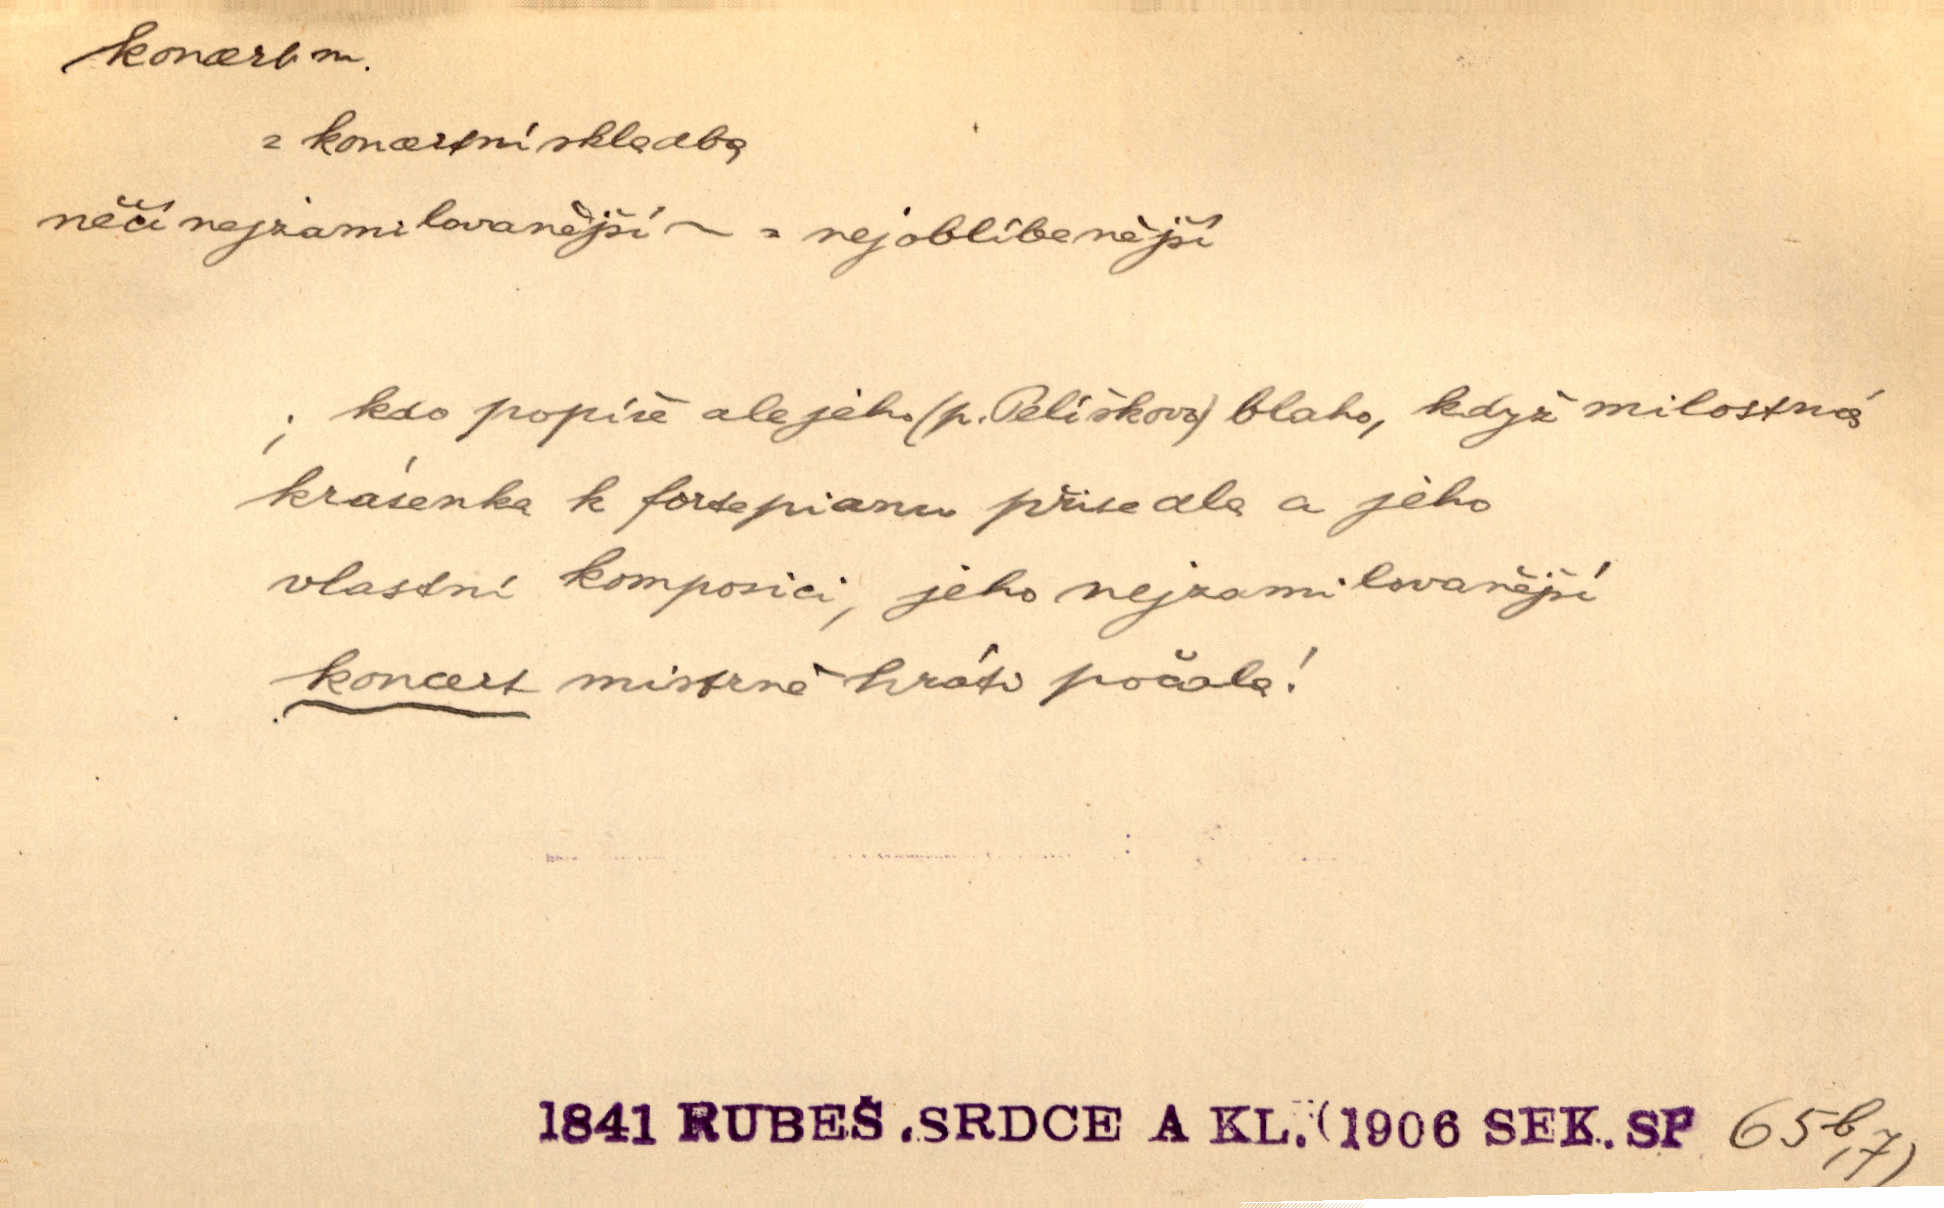 koncert m.
= koncertní skladba
něčí nejzamilovanější ~ = nejoblíbenější
; kdo popíše ale jeho (p. Pelíškovo) blaho, když milostná
krásenka k fortepianu přisedla a jeho
vlastní komposici, jeho nejzamilovanější
koncert mistrně hráti počala!
1841 RUBEŠ. SRDCE A KL. (1906 SEK. SP 65b,7)